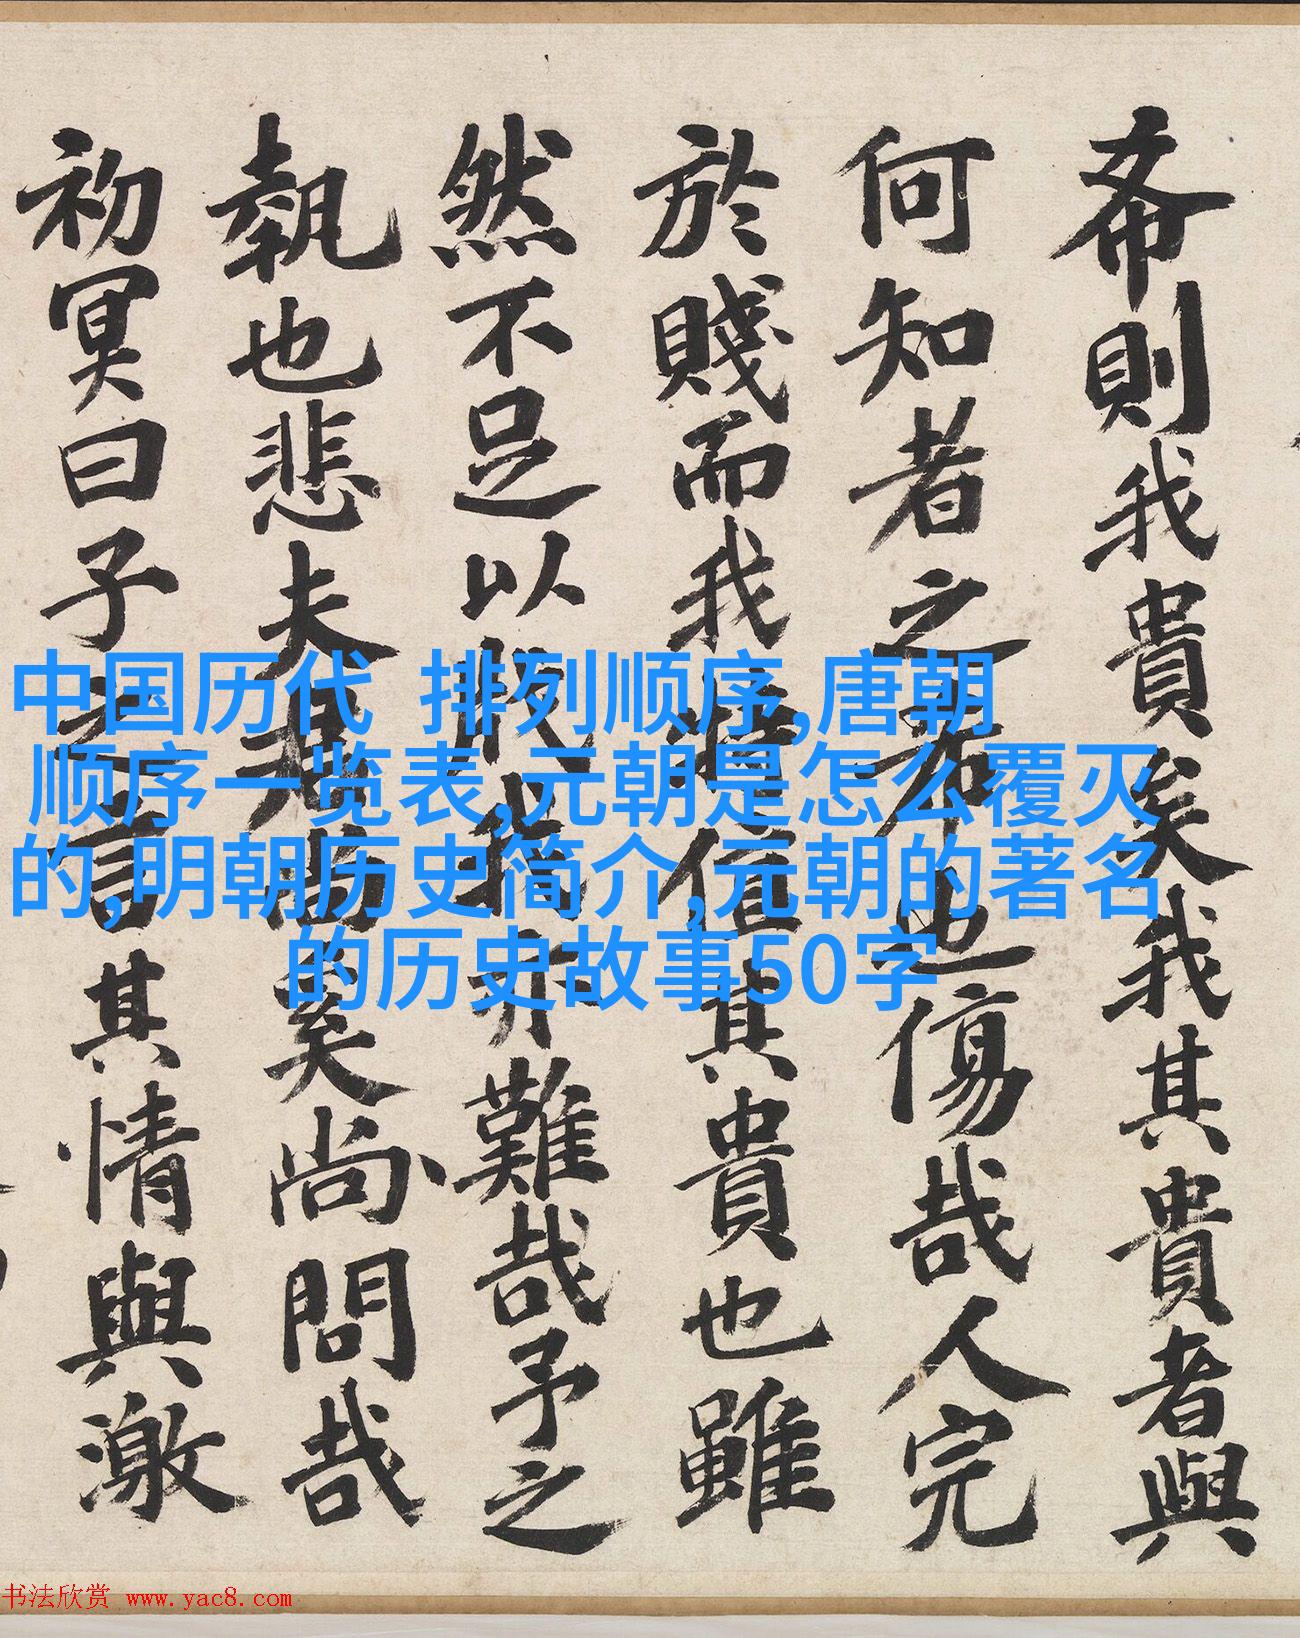 希則我貴矣我其貴者與
何知者之也傷哉人完
於賤而我值其貴也雖
然不足以難哉予之
執也悲夫矣尚問哉
初冥曰子之言其情與激
中国历代 排列顺序,唐朝
顺序一览表,元朝是怎么覆灭
的,明朝历史简介,元朝的著名
的历史故事50字
书法欣赏 www.yac8.com